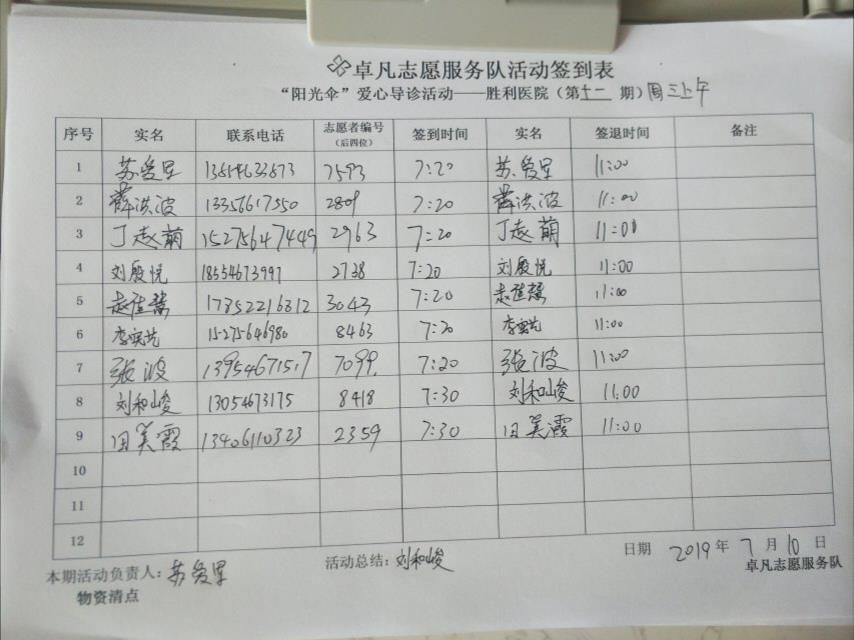 卓凡志愿服务队活动签到表
“阳光伞”爱心导诊活动——胜利医院（第十二期）周三上午
序号 实名 联系电话 志愿者编号（后四位） 签到时间 实名 签退时间 备注
1 苏爱军 7593 7:20 苏爱军 11:00
2 薛洪波 13356617550 2809 7:20 薛洪波 11:00
3 丁赵萌 15275647449 2963 7:20 丁赵萌 11:00
4 刘殿悦 18554673997 2738 7:20 刘殿悦 11:00
5 赵佳慧 17852216812 3043 7:20 赵佳慧 11:00
6 15275646980 8463 7:20 11:00
7 张波 13954671517 7099 7:20 张波 11:00
8 刘和峻 13054673175 8418 7:30 刘和峻 11:00
9 田美霞 13406110323 2359 7:30 田美霞 11:00
10
11
12
本期活动负责人：苏爱军 活动总结：刘和峻 日期 2019年7月10日
物资清点 卓凡志愿服务队